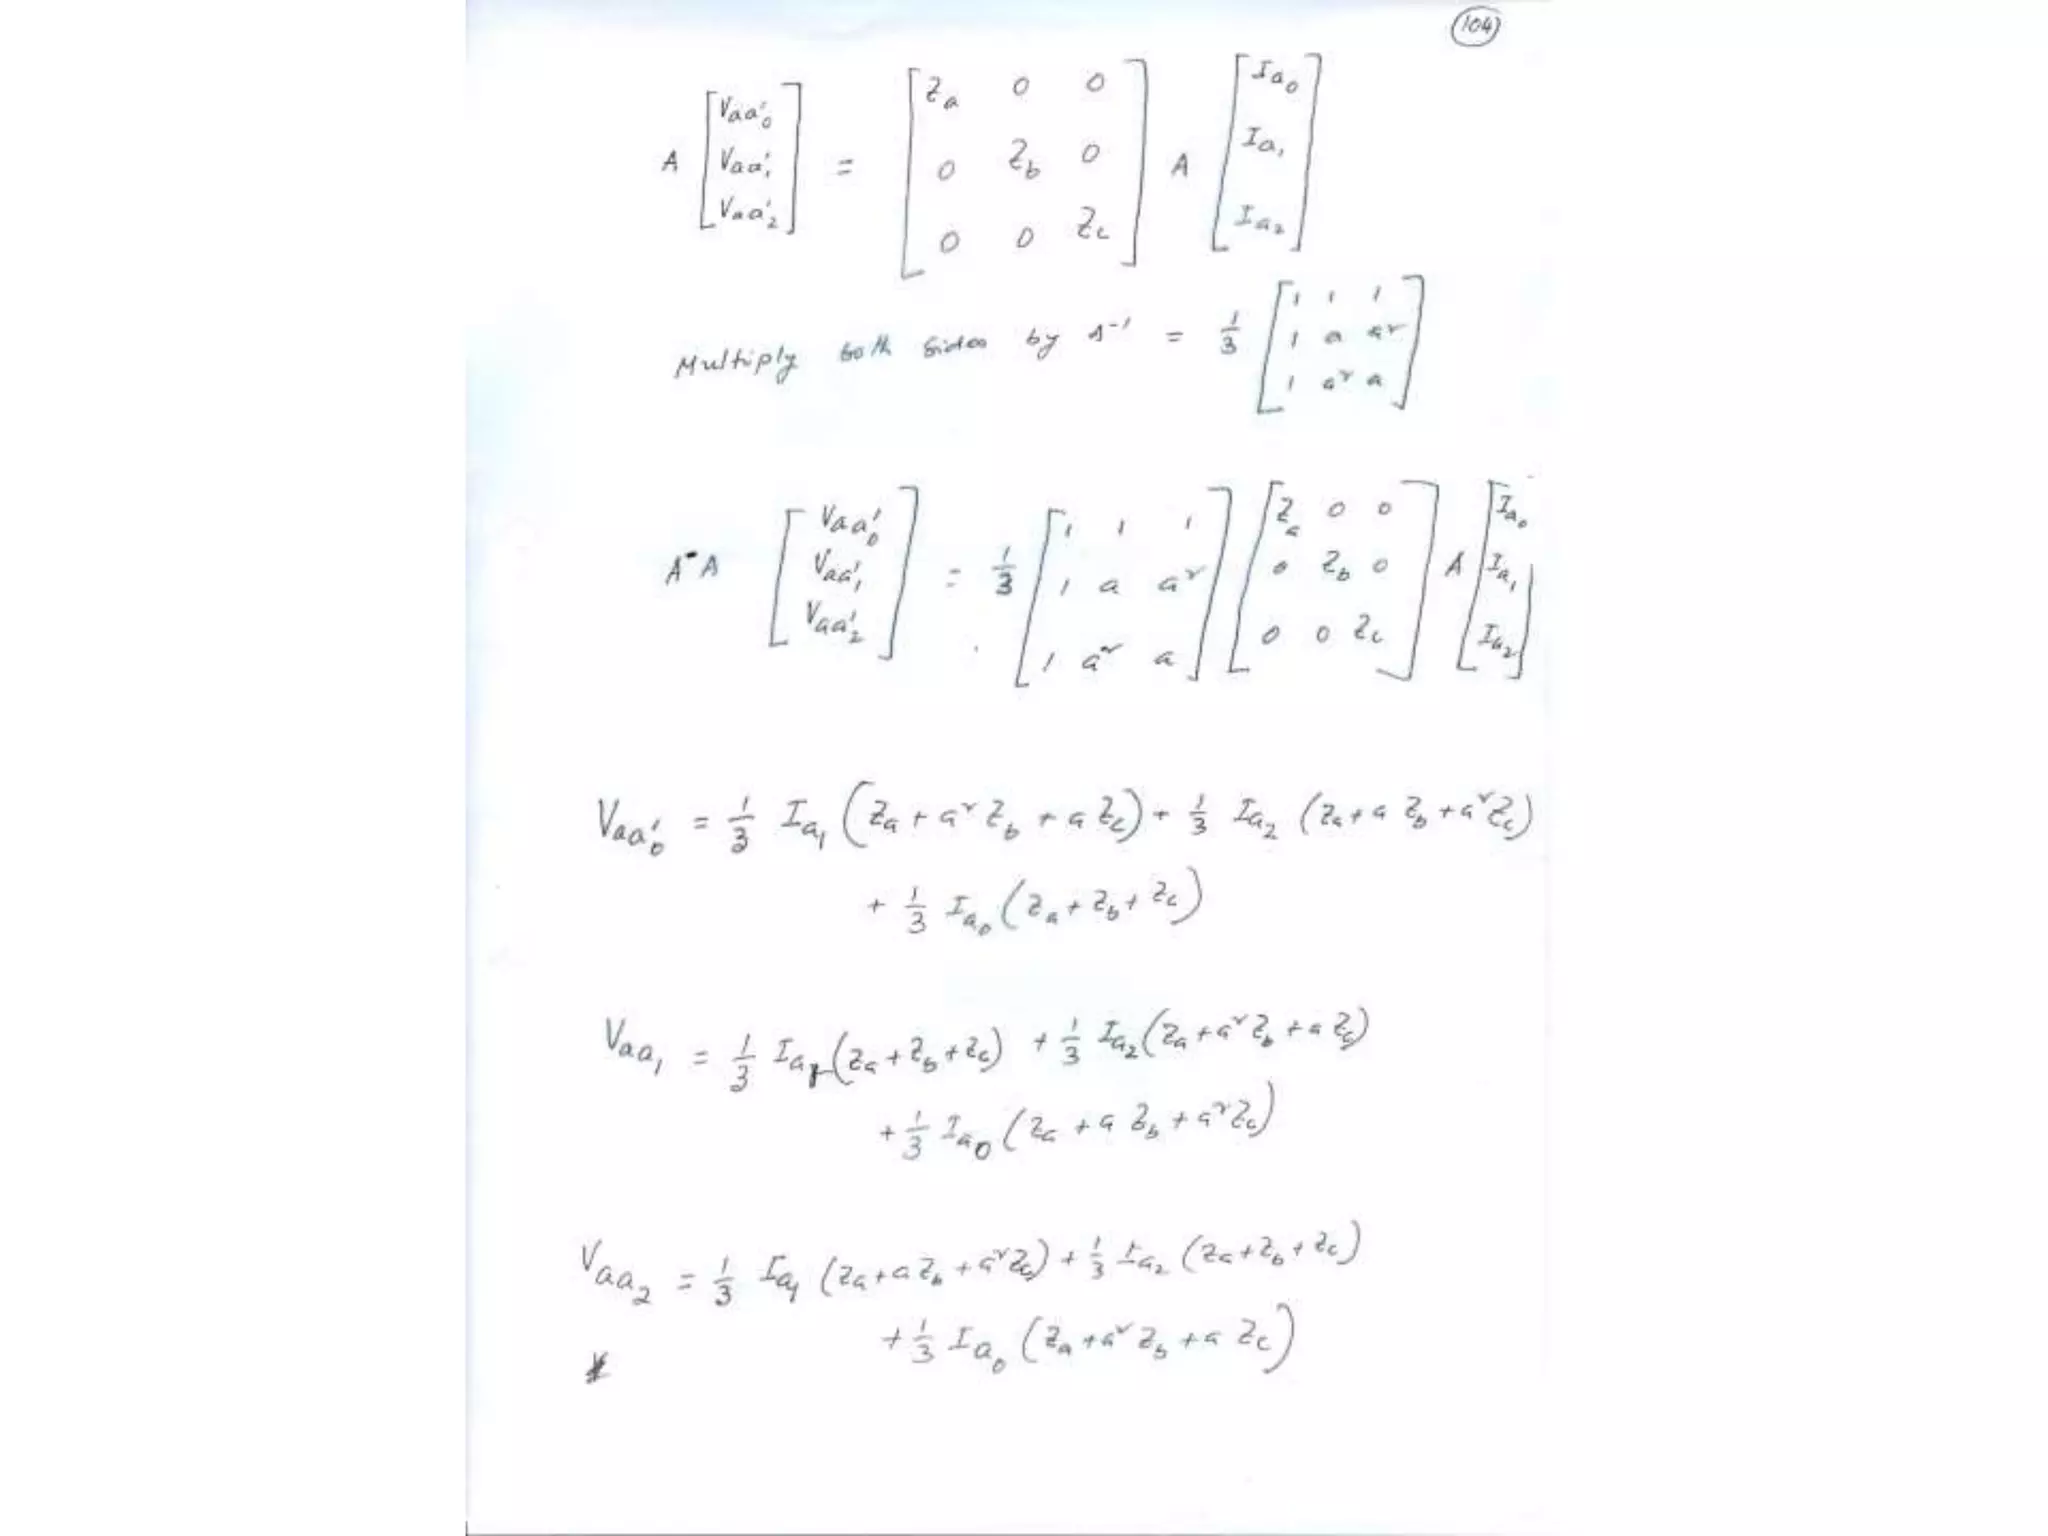 104
A [Vaa'₀ Vaa'₁ Vaa'₂] = [Za 0 0 / 0 Zb 0 / 0 0 Zc] A [Ia₀ Ia₁ Ia₂]
Multiply both sides by A⁻¹ = 1/3 [1 1 1 / 1 a a² / 1 a² a]
A⁻ A [Vaa'₀ Vaa'₁ Vaa'₂] = 1/3 [1 1 1 / 1 a a² / 1 a² a] [Za 0 0 / 0 Zb 0 / 0 0 Zc] A [Ia₀ Ia₁ Ia₂]
Vaa'₀ = 1/3 Ia₁ (Za + a² Zb + a Zc) + 1/3 Ia₂ (Za + a Zb + a² Zc)
+ 1/3 Ia₀ (Za + Zb + Zc)
Vaa₁ = 1/3 Ia₁ (Za + Zb + Zc) + 1/3 Ia₂ (Za + a² Zb + a Zc)
+ 1/3 Ia₀ (Za + a Zb + a² Zc)
Vaa₂ = 1/3 Ia₁ (Za + a Zb + a² Zc) + 1/3 Ia₂ (Za + Zb + Zc)
+ 1/3 Ia₀ (Za + a² Zb + a Zc)